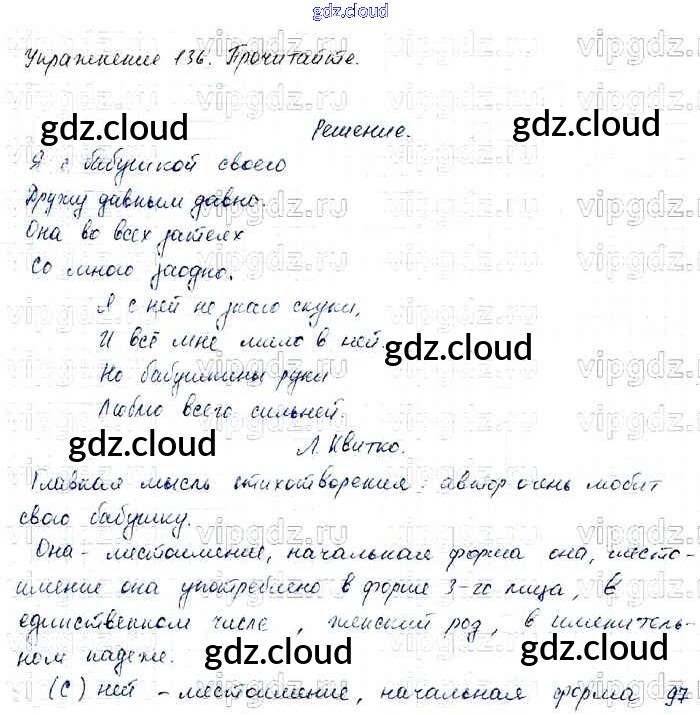 gdz.cloud
Упражнение 136. Прочитайте.
vipgdz.ru
gdz.cloud
gdz.cloud
Решение.
Я с бабушкой своего
Дружу давным давно.
Она во всех затеях
Со мною заодно.
Я с ней не знаю скуки,
И всё мне мило в ней.
gdz.cloud
Но бабушкины руки
Люблю всего сильней.
gdz.cloud
Л. Квитко.
Главная мысль стихотворения: автор очень любит
свою бабушку.
Она - местоимение, начальная форма она, место-
имение она употреблено в форме 3-го лица, в
единственном числе, женский род, в именитель-
ном падеже.
gdz.cloud
gdz.cloud
(С) ней - местоимение, начальная форма
97